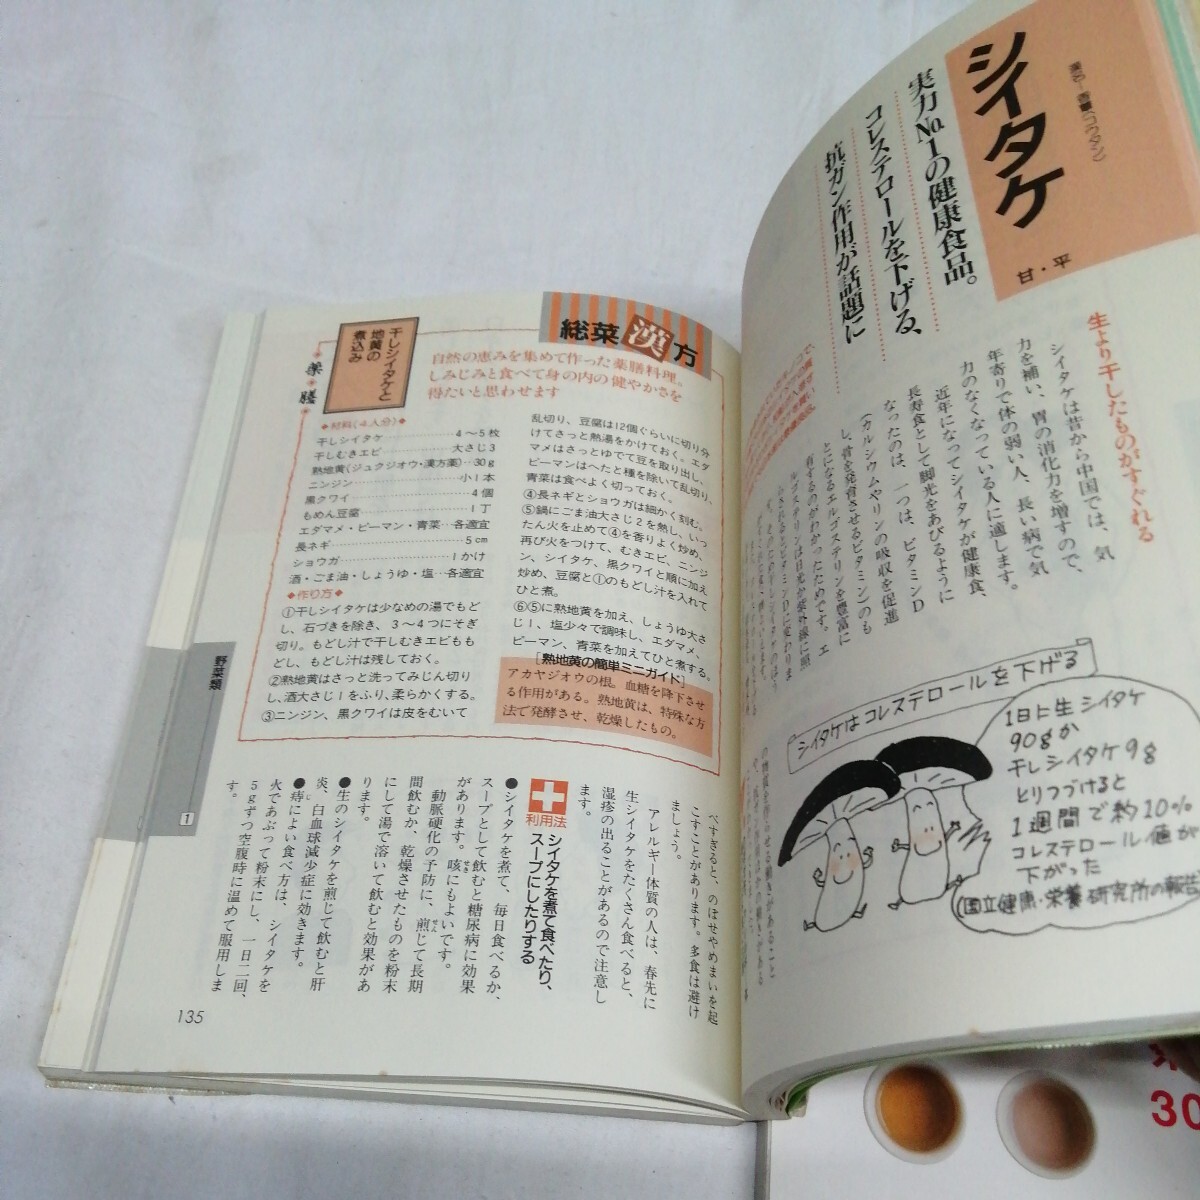 シイタケ
甘・平
実力No.1の健康食品。
コレステロールを下げる、
抗ガン作用が話題に
生より干したものがすぐれる
シイタケは昔から中国では、気
力を補い、胃の消化力を増すので、
年寄りで体の弱い人、長い病で気
力のなくなっている人に適します。
近年になってシイタケが健康食、
長寿食として脚光をあびるように
なったのは、一つは、ビタミンD
(カルシウムやリンの吸収を促進
し、骨を発育させるビタミン)のも
とになるエルゴステリンを豊富に
有するのがわかったためです。エ
ルゴステリンは日光か紫外線に照
シイタケはコレステロールを下げる
1日に生シイタケ
90gか
干しシイタケ9g
とりつづけると
1週間で約10%
コレステロール値が
下がった
(国立健康・栄養研究所の報告
総菜漢方
自然の恵みを集めて作った薬膳料理。
しみじみと食べて身の内の健やかさを
得たいと思わせます
干しシイタケと
地黄の
煮込み
薬膳
◆材料(4人分)◆
干しシイタケ……4〜5枚
干しむきエビ……大さじ3
熟地黄(ジュクジオウ・漢方薬)…30g
ニンジン……小1本
黒クワイ……4個
もめん豆腐……1丁
エダマメ・ピーマン・青菜…各適宜
長ネギ……5cm
ショウガ……1かけ
酒・ごま油・しょうゆ・塩…各適宜
◆作り方◆
①干しシイタケは少なめの湯でもど
し、石づきを除き、3〜4つにそぎ
切り。もどし汁で干しむきエビもも
どし、もどし汁は残しておく。
②熟地黄はさっと洗ってみじん切り
し、酒大さじ1をふり、柔らかくする。
③ニンジン、黒クワイは皮をむいて
乱切り、豆腐は12個ぐらいに切り分
けてさっと熱湯をかけておく。エダ
マメはさっとゆでて豆を取り出し、
ピーマンはへたと種を除いて乱切り、
青菜は食べよく切っておく。
④長ネギとショウガは細かく刻む。
⑤鍋にごま油大さじ2を熱し、いっ
たん火を止めて④を香りよく炒め、
再び火をつけて、むきエビ、ニンジ
ン、シイタケ、黒クワイと順に加え
炒め、豆腐と①のもどし汁を入れて
ひと煮。
⑥⑤に熟地黄を加え、しょうゆ大さ
じ1、塩少々で調味し、エダマメ、
ピーマン、青菜を加えてひと煮する。
[熟地黄の簡単ミニガイド]
アカヤジオウの根。血糖を降下させ
る作用がある。熟地黄は、特殊な方
法で発酵させ、乾燥したもの。
べすぎると、のぼせやめまいを起
こすことがあります。多食は避け
ましょう。
アレルギー体質の人は、春先に
生シイタケをたくさん食べると、
湿疹の出ることがあるので注意し
ます。
利用法
シイタケを煮て食べたり、
スープにしたりする
●シイタケを煮て、毎日食べるか、
スープとして飲むと糖尿病に効果
があります。咳にもよいです。
動脈硬化の予防に、煎じて長期
間飲むか、乾燥させたものを粉末
にして湯で溶いて飲むと効果があ
ります。
●生のシイタケを煎じて飲むと肝
炎、白血球減少症に効きます。
●痔によい食べ方は、シイタケを
火であぶって粉末にし、一日二回、
5gずつ空腹時に温めて服用しま
す。
野菜類
1
135
30